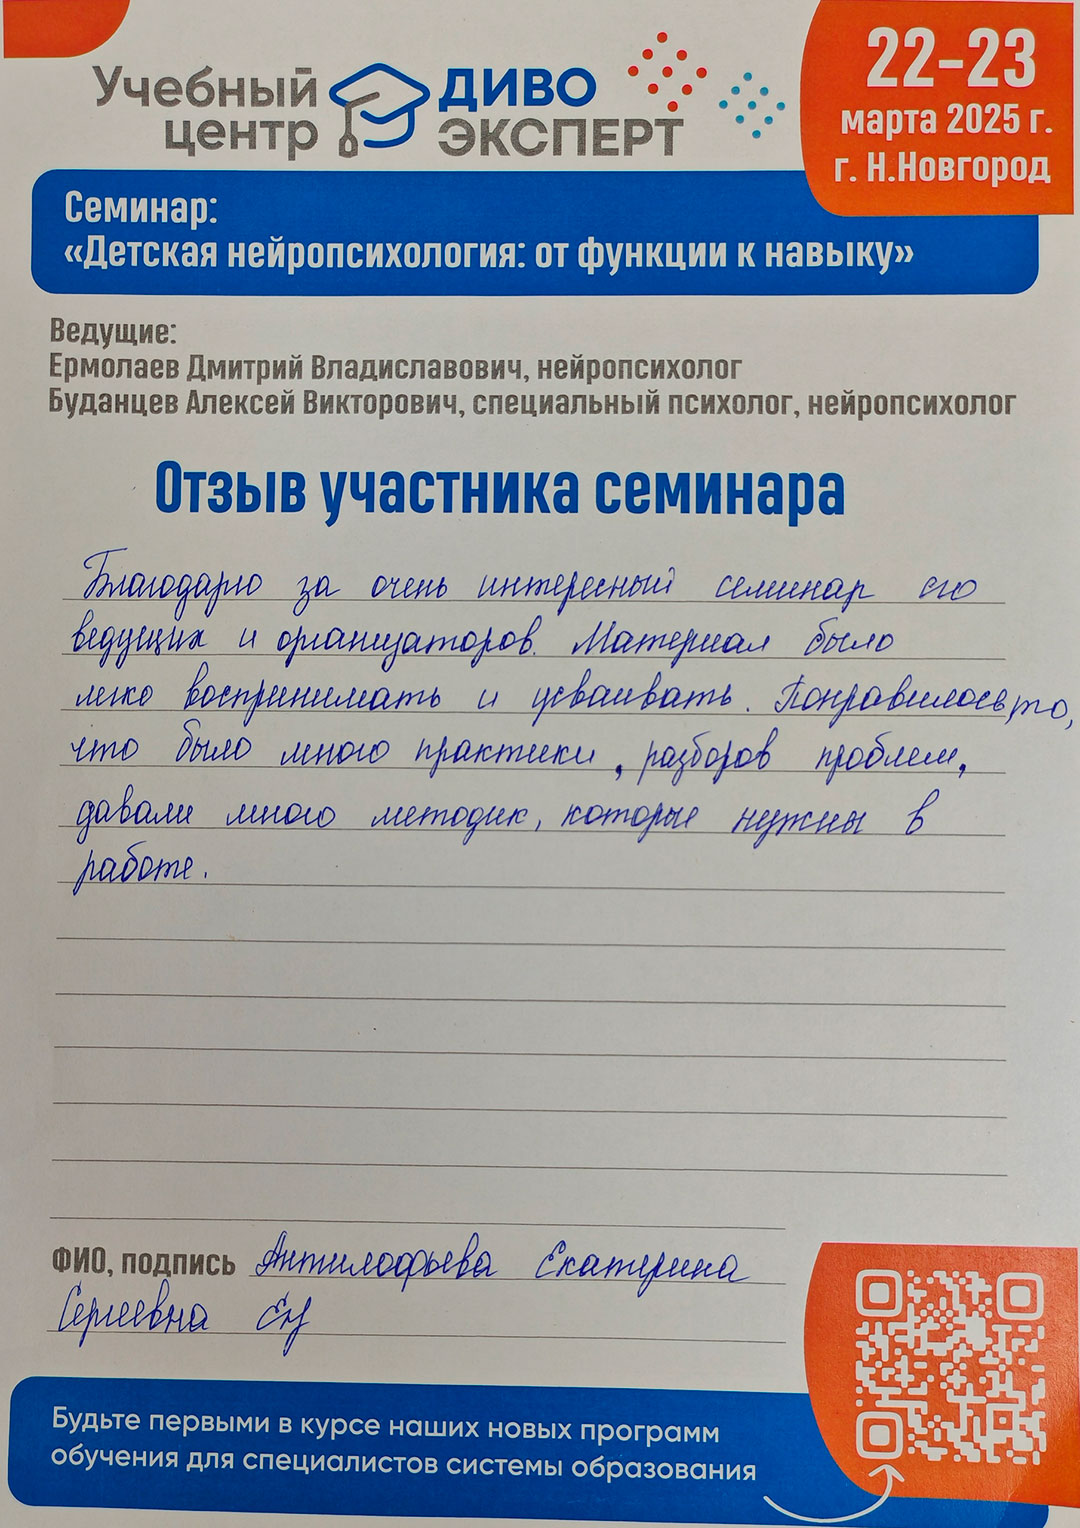 Учебный центр
ДИВО ЭКСПЕРТ
22-23
марта 2025 г.
г. Н.Новгород
Семинар:
«Детская нейропсихология: от функции к навыку»
Ведущие:
Ермолаев Дмитрий Владиславович, нейропсихолог
Буданцев Алексей Викторович, специальный психолог, нейропсихолог
Отзыв участника семинара
Благодарю за очень интересный семинар его
ведущих и организаторов. Материал было
легко воспринимать и усваивать. Понравилось то,
что было много практики, разборов проблем,
давали много методик, которые нужны в
работе.
ФИО, подпись Антилофьева Екатерина
Сергеевна
Будьте первыми в курсе наших новых программ
обучения для специалистов системы образования